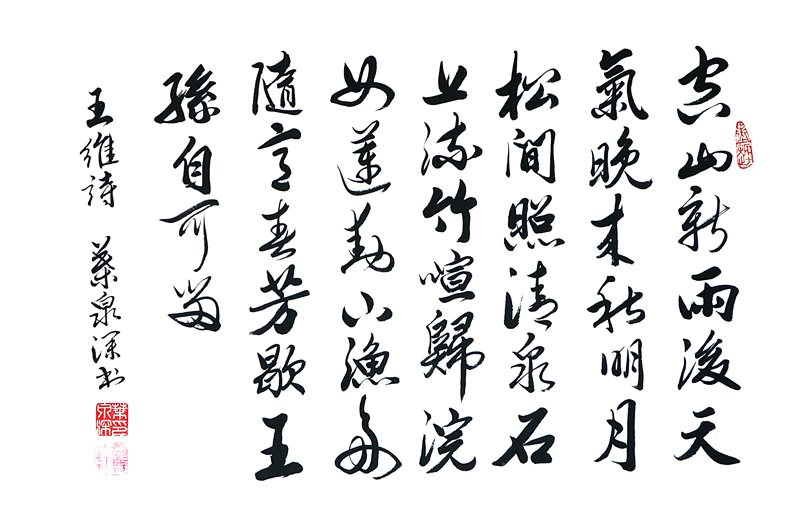 空山新雨後天
氣晚来秋明月
松間照清泉石
上流竹喧歸浣
女蓮動下漁舟
隨意春芳歇王
孫自可留
王維詩 葉泉深书